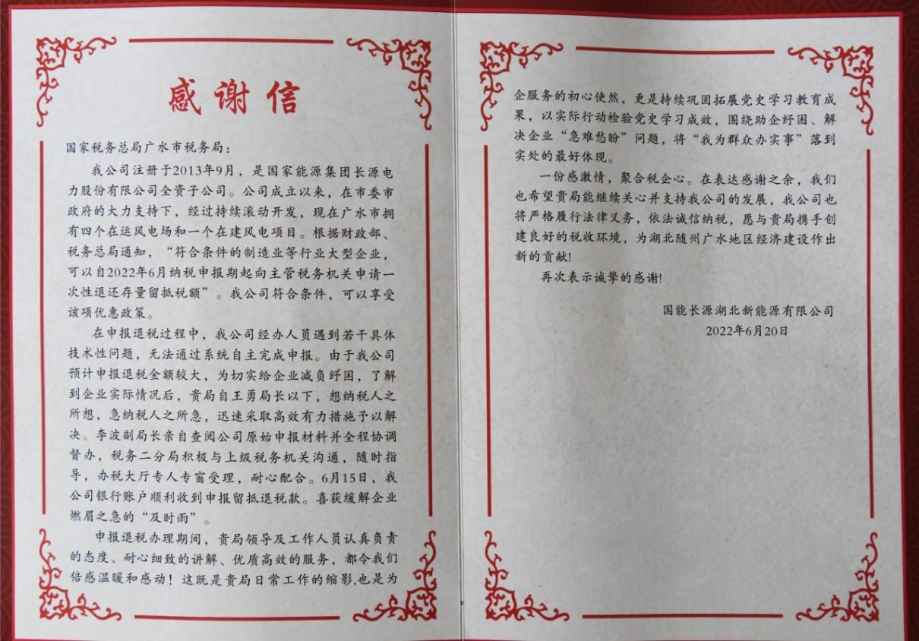 感谢信
国家税务总局广水市税务局：
我公司注册于2013年9月，是国家能源集团长源电
力股份有限公司全资子公司。公司成立以来，在市委市
政府的大力支持下，经过持续滚动开发，现在广水市拥
有四个在运风电场和一个在建风电项目。根据财政部、
税务总局通知，“符合条件的制造业等行业大型企业，
可以自2022年6月纳税申报期起向主管税务机关申请一
次性退还存量留抵税额”。我公司符合条件，可以享受
该项优惠政策。
在申报退税过程中，我公司经办人员遇到若干具体
技术性问题，无法通过系统自主完成申报。由于我公司
预计申报退税金额较大，为切实给企业减负纾困，了解
到企业实际情况后，贵局自王勇局长以下，想纳税人之
所想，急纳税人之所急，迅速采取高效有力措施予以解
决。李波副局长亲自查阅公司原始申报材料并全程协调
督办，税务二分局积极与上级税务机关沟通，随时指
导，办税大厅专人专窗受理，耐心配合。6月15日，我
公司银行账户顺利收到申报留抵退税款。喜获缓解企业
燃眉之急的“及时雨”。
申报退税办理期间，贵局领导及工作人员认真负责
的态度、耐心细致的讲解、优质高效的服务，都令我们
倍感温暖和感动！这既是贵局日常工作的缩影,也是为
企服务的初心使然，更是持续巩固拓展党史学习教育成
果，以实际行动检验党史学习成效，围绕助企纾困、解
决企业“急难愁盼”问题，将“我为群众办实事”落到
实处的最好体现。
一份感激情，聚合税企心。在表达感谢之余，我们
也希望贵局能继续关心并支持我公司的发展，我公司也
将严格履行法律义务，依法诚信纳税，愿与贵局携手创
建良好的税收环境，为湖北随州广水地区经济建设作出
新的贡献!
再次表示诚挚的感谢!
国能长源湖北新能源有限公司
2022年6月20日